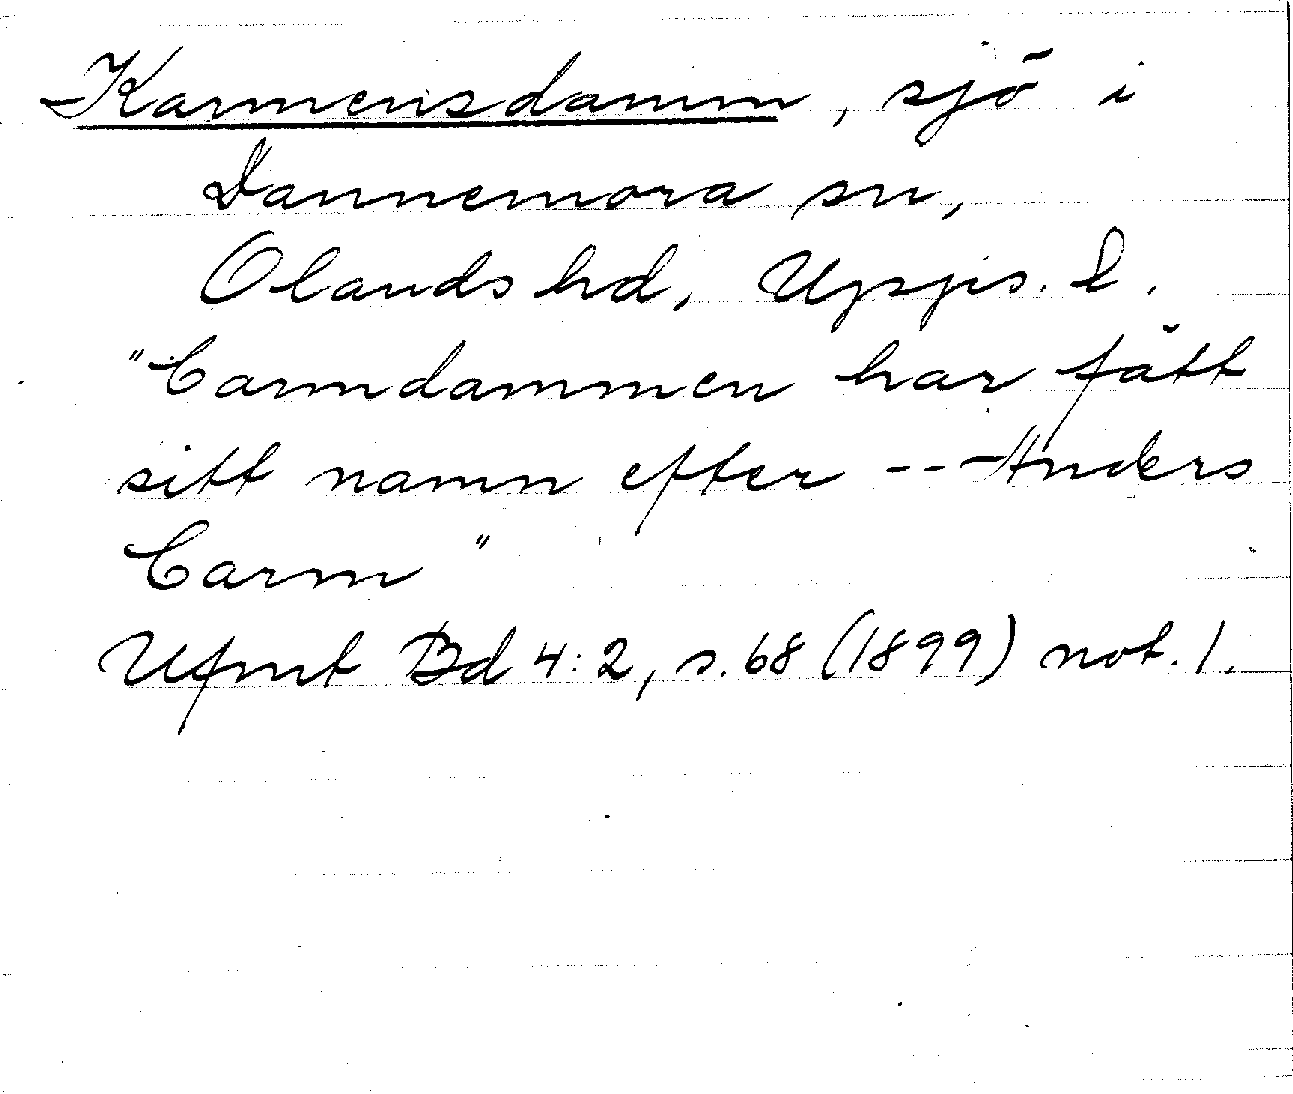 Karmensdamm, sjö i
Dannemora sn,
Olands hd, Upps. l.
"Carmdammen har fått
sitt namn efter -- Anders
Carm"
Ufmt Bd 4:2, s. 68 (1899) not. 1.